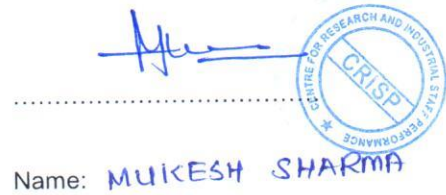 CENTRE FOR RESEARCH AND INDUSTRIAL STAFF PERFORMANCE
CRISP
Name: MUKESH SHARMA